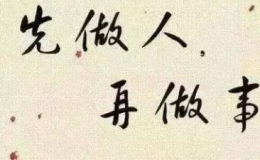 先做人,
再做事